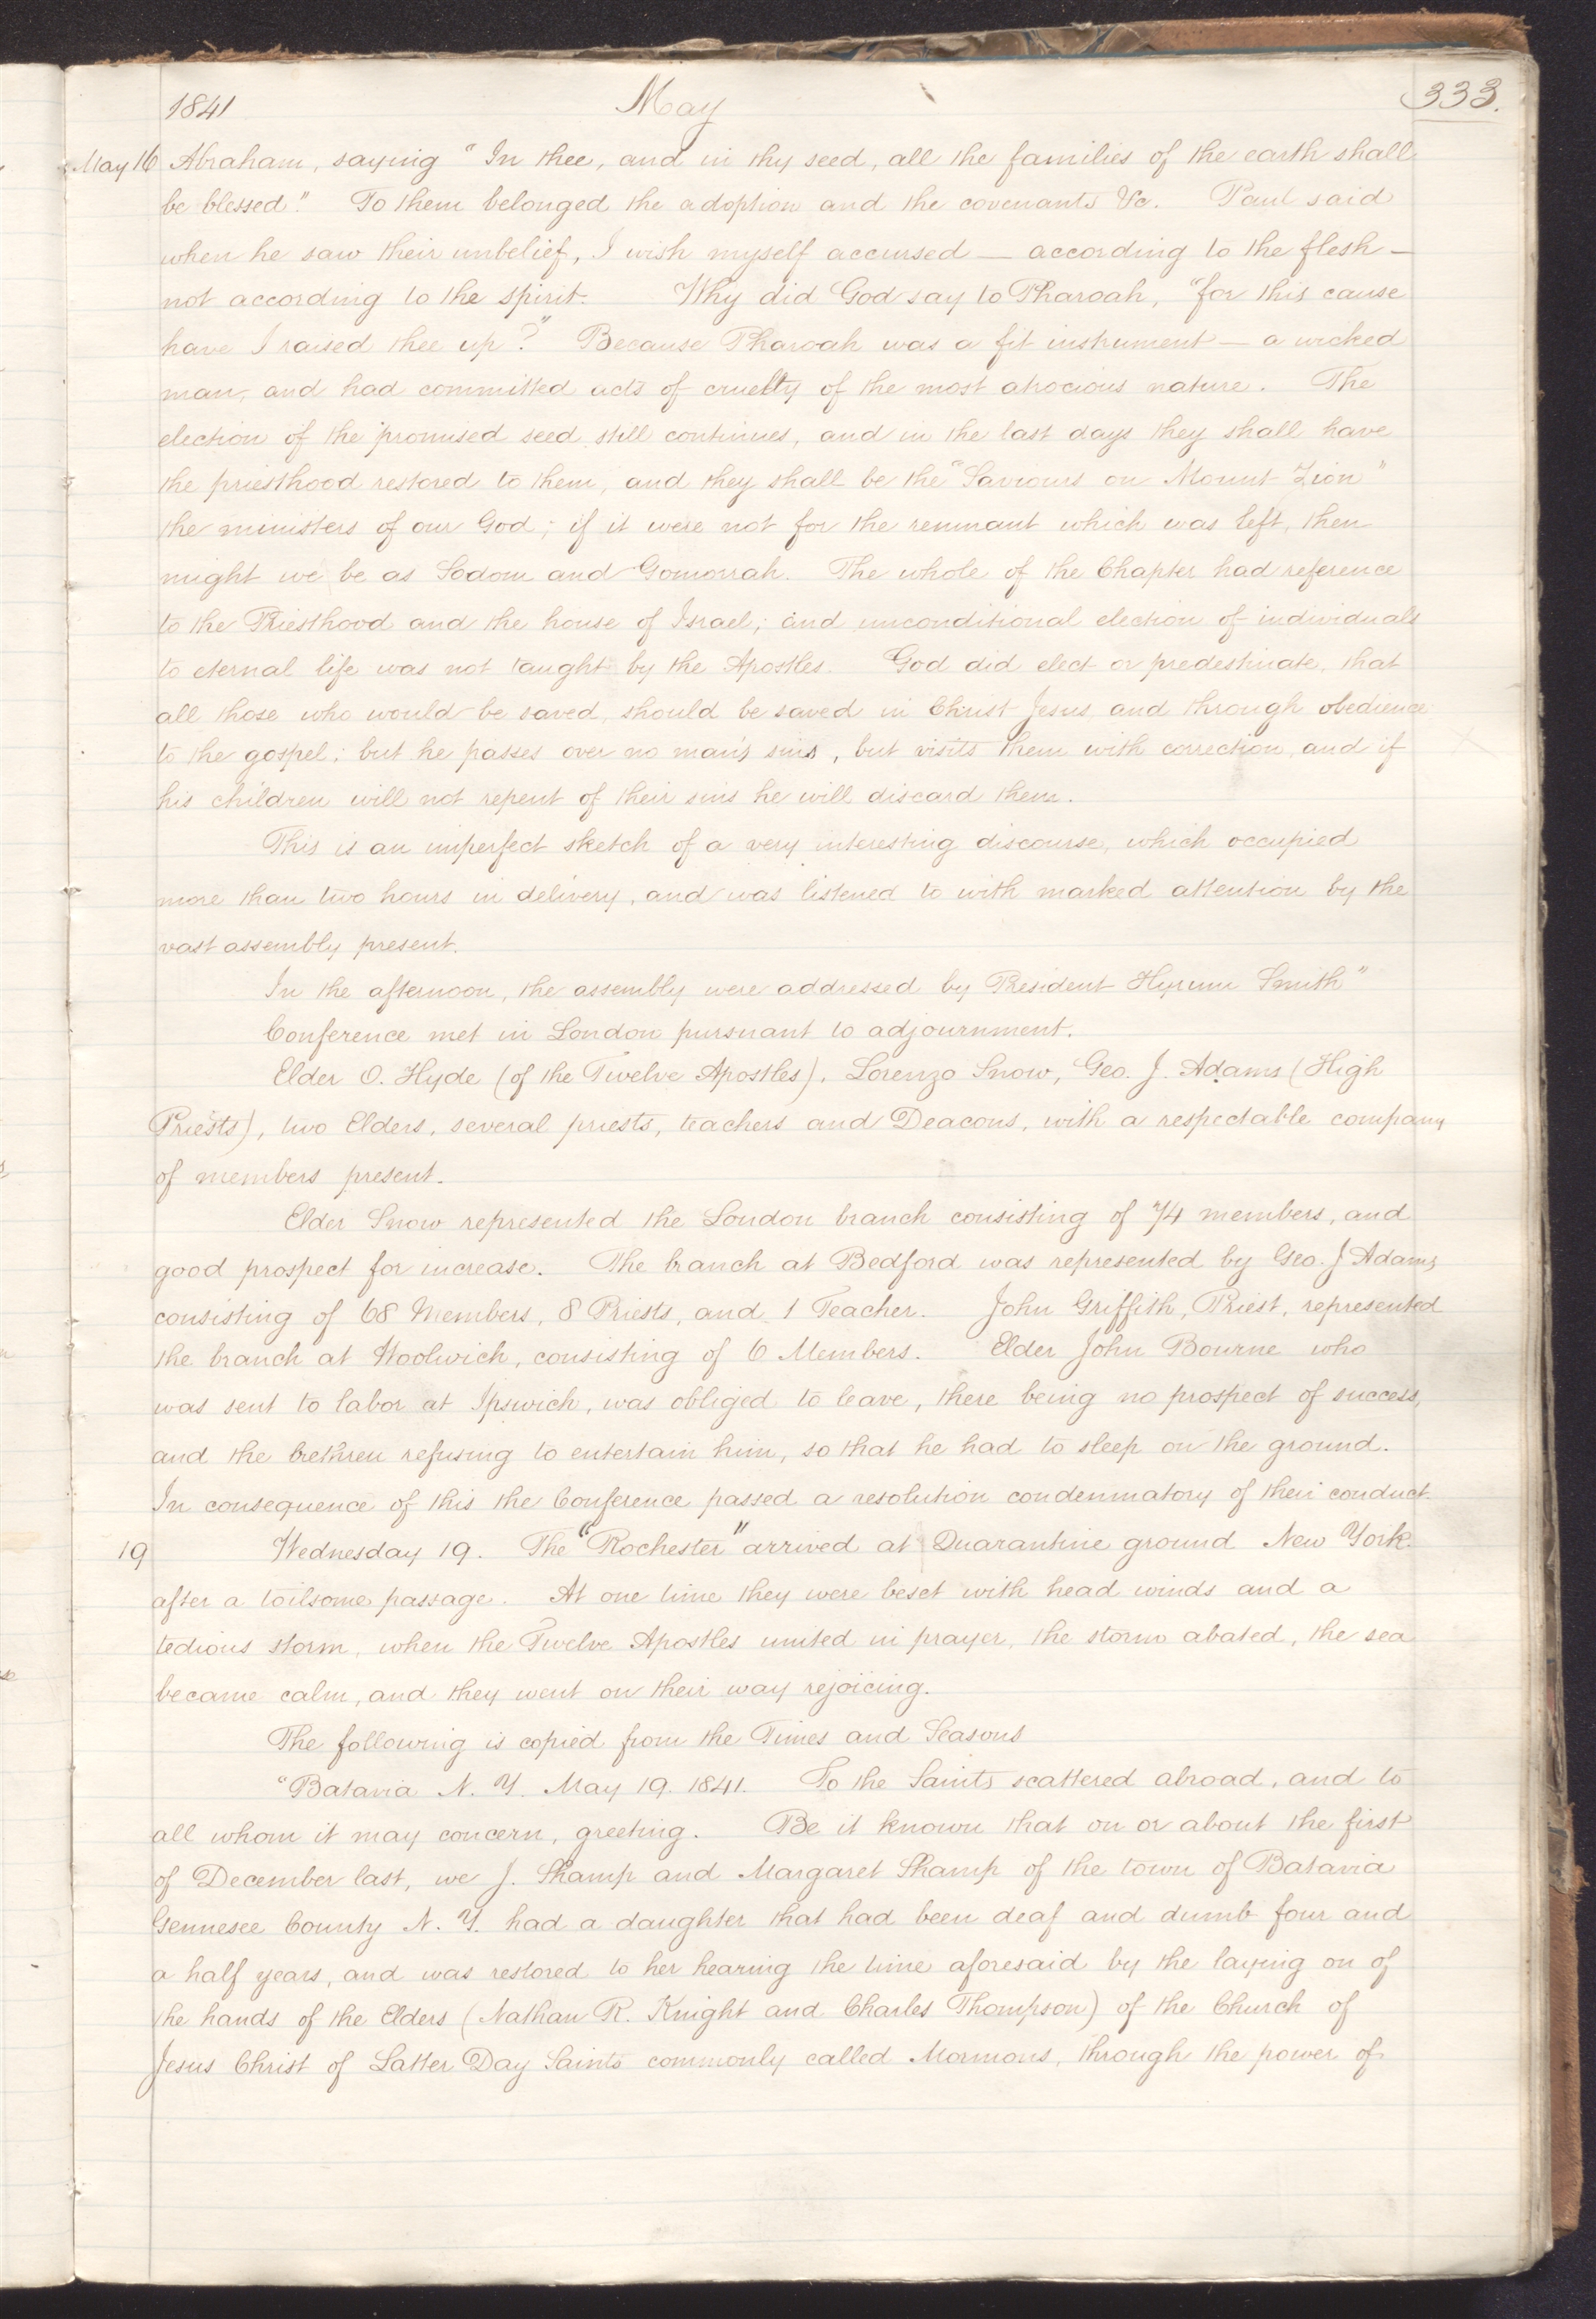 1841 May 333.
May 16 Abraham, saying "In thee, and in thy seed, all the families of the earth shall
be blessed." To them belonged the adoption and the covenants &c. Paul said
when he saw their unbelief, I wish myself accursed — according to the flesh —
not according to the spirit. Why did God say to Pharoah, "for this cause
have I raised thee up?" Because Pharoah was a fit instrument — a wicked
man, and had committed acts of cruelty of the most atrocious nature. The
election of the promised seed still continues, and in the last days they shall have
the priesthood restored to them, and they shall be the "Saviours on Mount Zion"
the ministers of our God; if it were not for the remnant which was left, then
might we be as Sodom and Gomorrah. The whole of the Chapter had reference
to the Priesthood and the house of Israel; and unconditional election of individuals
to eternal life was not taught by the Apostles. God did elect or predestinate, that
all those who would be saved, should be saved in Christ Jesus, and through obedience
to the gospel; but he passes over no man's sins, but visits them with correction, and if
his children will not repent of their sins he will discard them.
This is an imperfect sketch of a very interesting discourse, which occupied
more than two hours in delivery, and was listened to with marked attention by the
vast assembly present.
In the afternoon, the assembly were addressed by President Hyrum Smith"
Conference met in London pursuant to adjournment.
Elder O. Hyde (of the Twelve Apostles), Lorenzo Snow, Geo. J. Adams (High
Priests), two Elders, several priests, teachers and Deacons, with a respectable company
of members present.
Elder Snow represented the London branch consisting of 74 members, and
good prospect for increase. The branch at Bedford was represented by Geo. J Adams
consisting of 68 Members, 8 Priests, and 1 Teacher. John Griffith, Priest, represented
the branch at Woolwich, consisting of 6 Members. Elder John Bourne who
was sent to labor at Ipswich, was obliged to leave, there being no prospect of success,
and the brethren refusing to entertain him, so that he had to sleep on the ground.
In consequence of this the Conference passed a resolution condemnatory of their conduct.
19 Wednesday 19. The "Rochester" arrived at Quarantine ground New York
after a toilsome passage. At one time they were beset with head winds and a
tedious storm, when the Twelve Apostles united in prayer, the storm abated, the sea
became calm, and they went on their way rejoicing.
The following is copied from the Times and Seasons
"Batavia N. Y. May 19. 1841. To the Saints scattered abroad, and to
all whom it may concern, greeting. Be it known that on or about the first
of December last, we J. Shamp and Margaret Shamp of the town of Batavia
Gennesee County N. Y. had a daughter that had been deaf and dumb four and
a half years, and was restored to her hearing the time aforesaid by the laying on of
the hands of the Elders (Nathan R. Knight and Charles Thompson) of the Church of
Jesus Christ of Latter Day Saints commonly called Mormons, through the power of